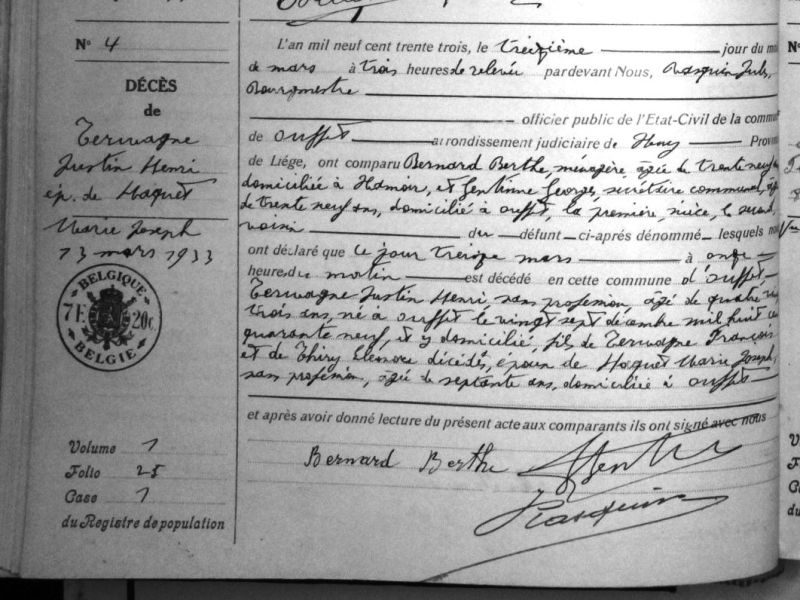 N° 4
DÉCÈS
de
Terwagne
Justin Henri
ép. de Haquet
Marie Joseph
13 mars 1933
BELGIQUE
7 F. 20c.
BELGIE
Volume 1
Folio 25
Case 1
du Registre de population
L'an mil neuf cent trente trois, le treizième jour du m
de mars à trois heures de relevée par devant Nous, Rasquin Jules,
Bourgmestre
officier public de l'Etat-Civil de la commu
de Ouffet arrondissement judiciaire de Huy Provin
de Liége, ont comparu Bernard Berthe, ménagère, agée de trente neuf
domiciliée à Hamoir, et Gentinne Georges, secrétaire communal, âg
de trente neuf ans, domicilié à Ouffet, la première nièce, le second
voisin du défunt ci-après dénommé lesquels n
ont déclaré que ce jour treize mars à onze
heures du matin est décédé en cette commune d'Ouffet
Terwagne Justin Henri, sans profession, agé de quatre vin
trois ans, né à Ouffet le vingt sept décembre mil huit ce
quarante neuf, et y domicilié, fils de Terwagne François
et de Thiry Eléonore décédés, époux de Haquet Marie Joseph,
sans profession, agée de septante ans, domiciliée à Ouffet
et après avoir donné lecture du présent acte aux comparants ils ont signé avec nous
Bernard Berthe
Rasquin